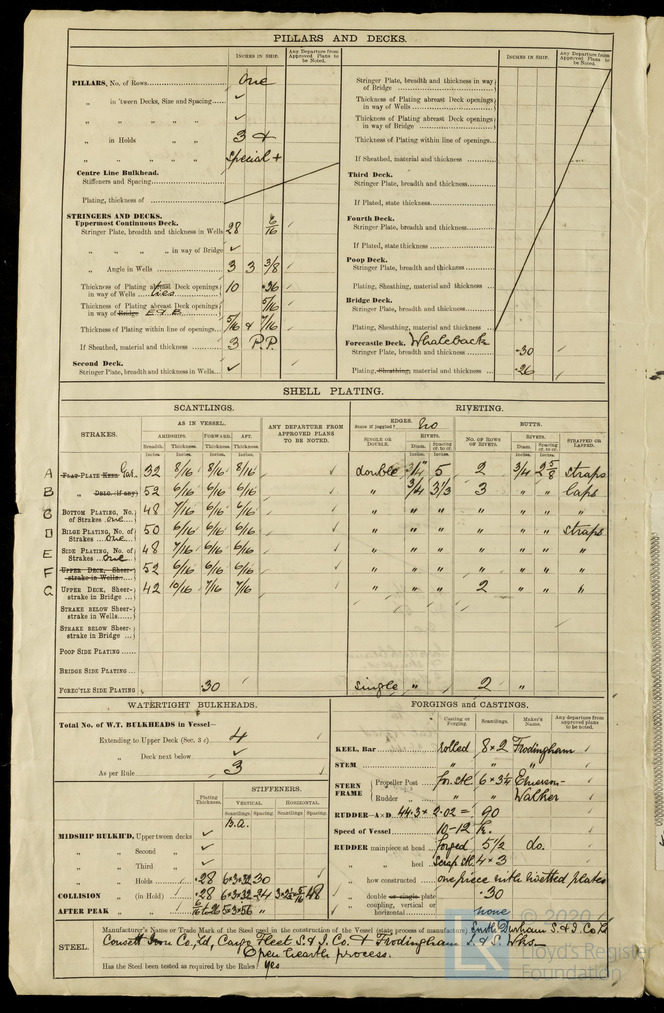 PILLARS AND DECKS.
INCHES IN SHIP.
Any Departure from Approved Plans to be Noted.
PILLARS, No. of Rows One
„ in 'tween Decks, Size and Spacing ✓
„ „ „ „ ✓
„ in Holds „ „ 3 +
„ „ „ „ Special +
Centre Line Bulkhead.
Stiffeners and Spacing
Plating, thickness of
STRINGERS AND DECKS.
Uppermost Continuous Deck.
Stringer Plate, breadth and thickness in Wells 28 6/16
„ „ „ „ in way of Bridge ✓
„ Angle in Wells 3 3 3/8
Thickness of Plating abreast Deck openings in way of Wells 10 .36
Thickness of Plating abreast Deck openings in way of Bridge E & B 5/16
Thickness of Plating within line of openings 5/16 & 7/16
If Sheathed, material and thickness 3 P.P.
Second Deck.
Stringer Plate, breadth and thickness in Wells ✓
INCHES IN SHIP.
Any Departure from Approved Plans to be Noted.
Stringer Plate, breadth and thickness in way of Bridge
Thickness of Plating abreast Deck openings in way of Wells
Thickness of Plating abreast Deck openings in way of Bridge
Thickness of Plating within line of openings
If Sheathed, material and thickness
Third Deck.
Stringer Plate, breadth and thickness
If Plated, state thickness
Fourth Deck.
Stringer Plate, breadth and thickness
If Plated, state thickness
Poop Deck.
Stringer Plate, breadth and thickness
Plating, Sheathing, material and thickness
Bridge Deck.
Stringer Plate, breadth and thickness
Plating, Sheathing, material and thickness
Forecastle Deck. Whaleback
Stringer Plate, breadth and thickness .30
Plating, Sheathing, material and thickness .26
SHELL PLATING.
SCANTLINGS.
RIVETING.
STRAKES.
AS IN VESSEL.
AMIDSHIPS. FORWARD. AFT.
Breadth. Thickness. Thickness. Thickness.
Inches. Inches. Inches. Inches.
ANY DEPARTURE FROM APPROVED PLANS TO BE NOTED.
EDGES.
State if joggled? No
SINGLE OR DOUBLE.
RIVETS.
Diam. Spacing cr. to cr.
Inches. Inches.
BUTTS.
NO. OF ROWS OF RIVETS.
RIVETS.
Diam. Spacing cr. to cr.
Inches. Inches.
STRAPPED OR LAPPED.
A FLAT PLATE KEEL Gar. 32 8/16 8/16 8/16 ✓ double 3/4" 5 2 3/4 2 5/8 straps
B „ DBLG. (if any) 52 6/16 6/16 6/16 ✓ „ 3/4 3 1/3 3 „ „ laps
C BOTTOM PLATING, No. of Strakes One 48 7/16 6/16 6/16 ✓ „ „ „ „ „ „ „
D BILGE PLATING, No. of Strakes One 50 6/16 6/16 6/16 ✓ „ „ „ „ „ „ straps
E SIDE PLATING, No. of Strakes One 48 7/16 6/16 6/16 ✓ „ „ „ „ „ „ „
F UPPER DECK, Sheerstrake in Wells 52 6/16 6/16 6/16 ✓ „ „ „ „ „ „ „
G UPPER DECK, Sheerstrake in Bridge 42 10/16 7/16 7/16 ✓ „ „ „ 2 „ „ „
STRAKE BELOW Sheerstrake in Wells
STRAKE BELOW Sheerstrake in Bridge
POOP SIDE PLATING
BRIDGE SIDE PLATING
FOREC'TLE SIDE PLATING .30 single „ 2 „
WATERTIGHT BULKHEADS.
Total No. of W.T. BULKHEADS in Vessel—
Extending to Upper Deck (Sec. 3 c) 4
„ Deck next below ✓
As per Rule 3
Plating Thickness.
STIFFENERS.
VERTICAL HORIZONTAL
Scantlings Spacing Scantlings Spacing
B.a.
MIDSHIP BULKH'D, Upper tween decks ✓
„ „ Second „ ✓
„ „ Third „ ✓
„ „ Holds .28 6×3×.32 30
COLLISION „ (in Hold) .28 6×3×.32 24 48
AFTER PEAK „ „
FORGINGS and CASTINGS.
Casting or Forging. Scantlings. Maker's Name. Any departure from approved plans to be noted.
KEEL, Bar rolled 8×2 Frodingham
STEM „ „ „
STERN FRAME Propeller Post for. Stl. 6×3 1/4 Emerson-
Rudder „ „ „ Walker
RUDDER—A×D 44.3 × 2.02 = 90
Speed of Vessel 10-12 k.
RUDDER mainpiece at head forged 5 1/2 do.
„ „ heel Scrap Stl 4×3
„ how constructed one piece with rivetted plates
„ double or single plate .30
„ coupling, vertical or horizontal none
STEEL.
Manufacturer's Name or Trade Mark of the Steel used in the construction of the Vessel (state process of manufacture) South Durham S. & I. Co Ld
Consett Iron Co., Ld, Cargo Fleet S. & I. Co. & Frodingham I. & S. Wks.
Open hearth process.
Has the Steel been tested as required by the Rules? Yes
© 2020
Lloyd's Register
Foundation